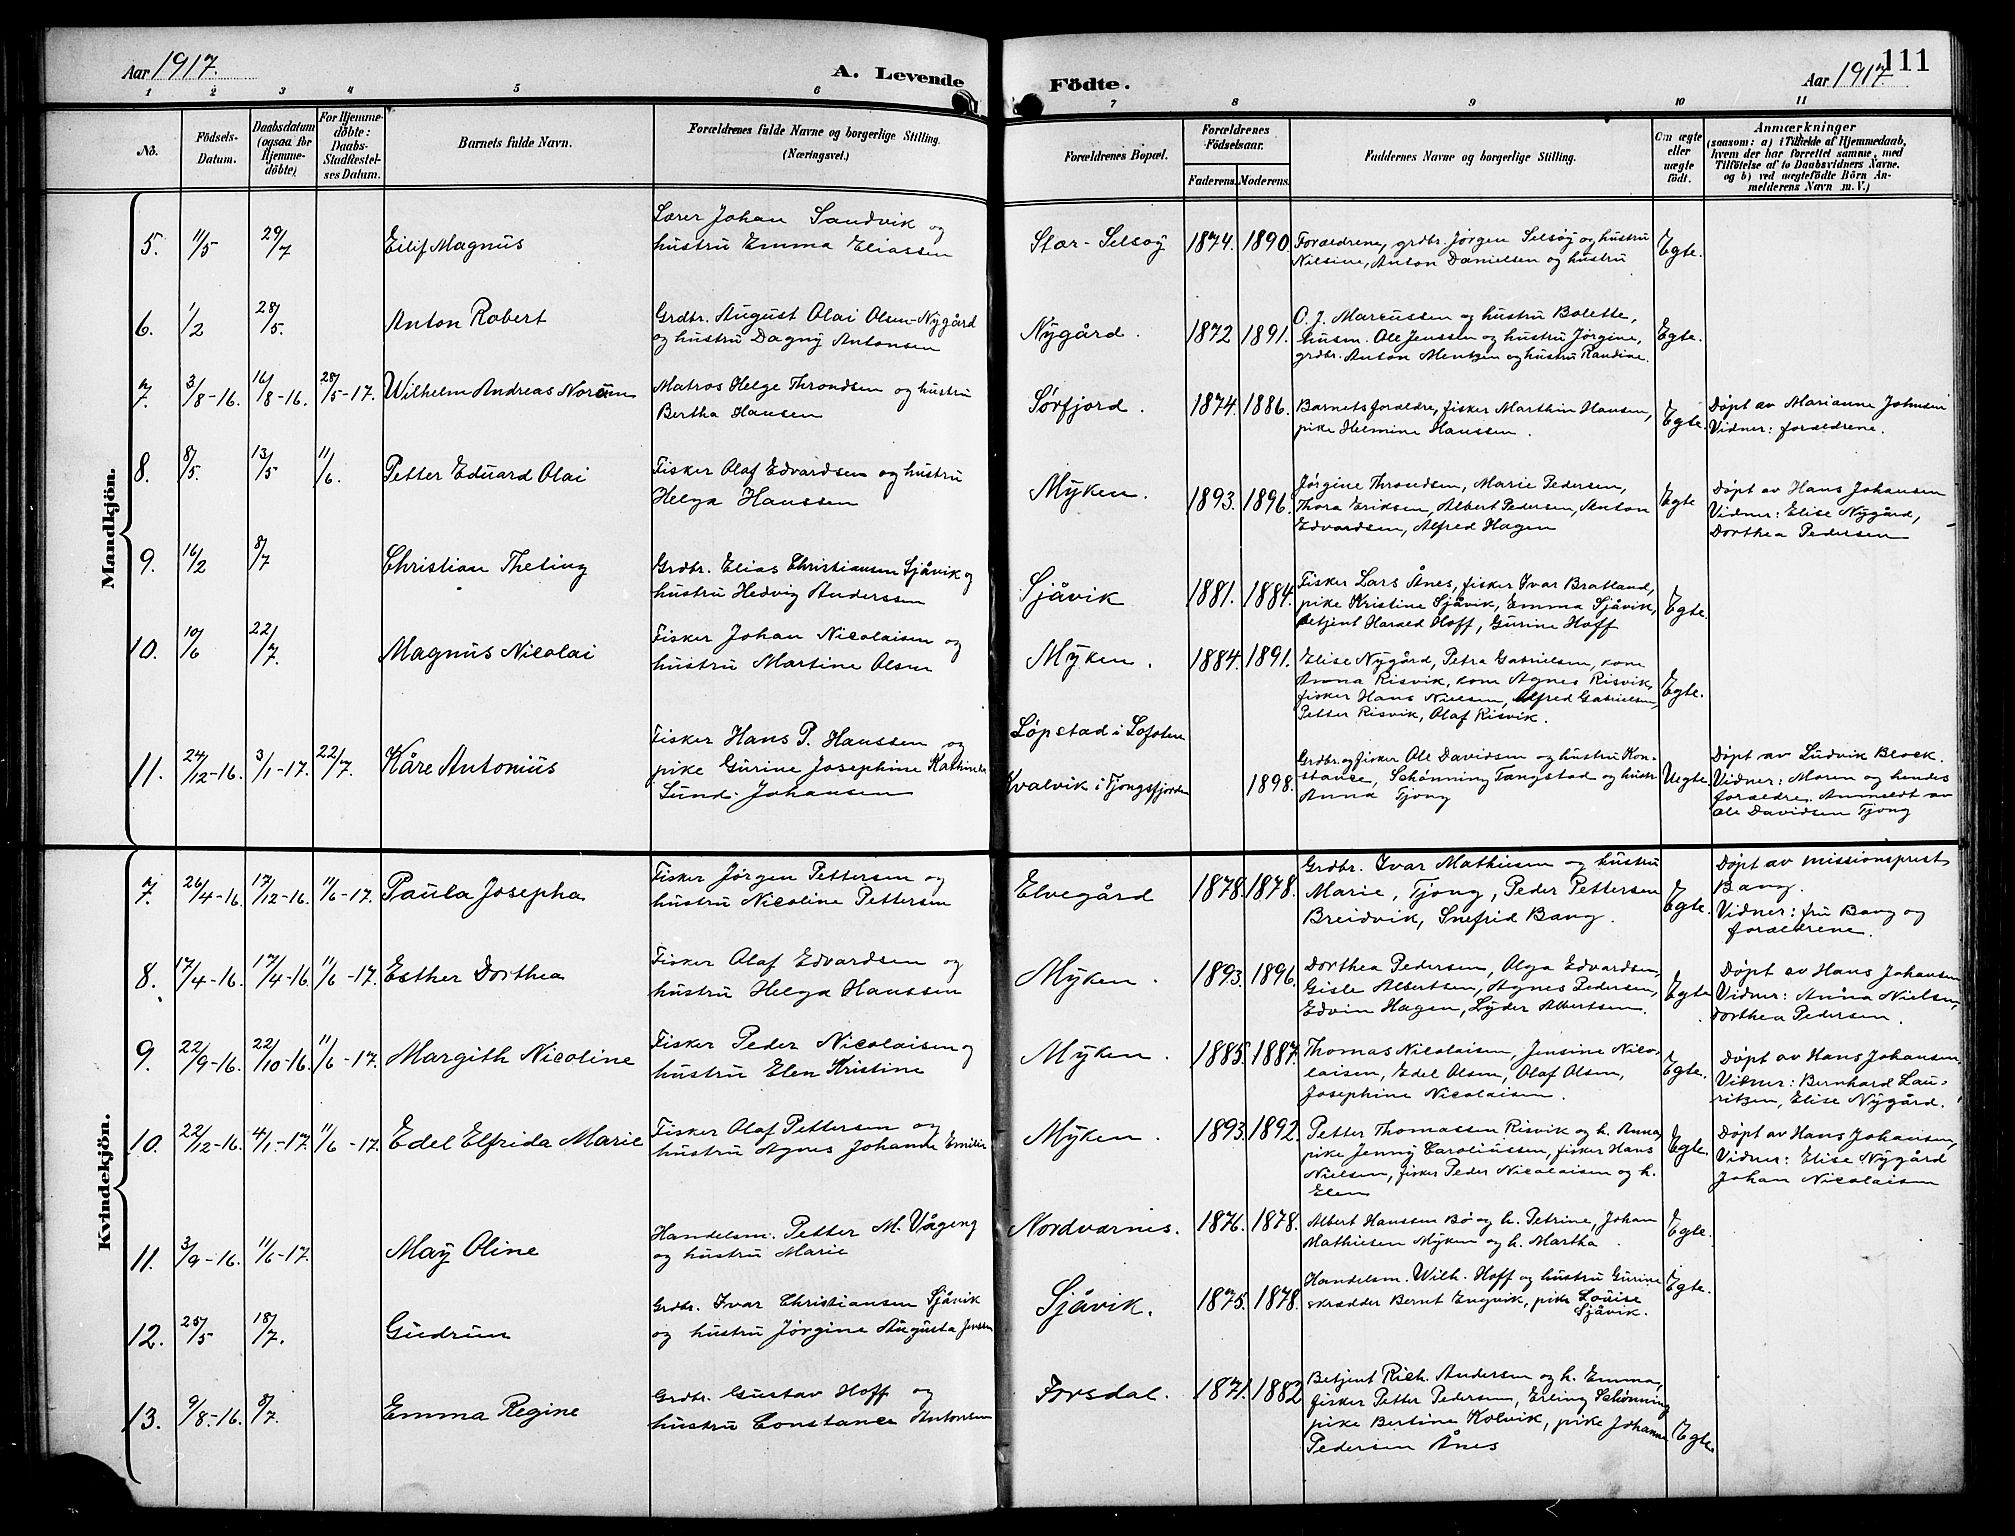 Aar 1917.
A. Levende
Födte.
Aar 1917.
111
1 2 3 4 5 6 7 8 9 10 11
No.
Födsels-
Datum.
Daabsdatum
(ogsaa for
Hjemme-
döbte)
For Hjemme-
döbte:
Daabs-
Stadfæstel-
ses Datum.
Barnets fulde Navn.
Forældrenes fulde Navne og borgerlige Stilling.
(Næringsvei.)
Forældrenes Bopæl.
Forældrenes
Födselsaar.
Faderens. Moderens.
Faddernes Navne og borgerlige Stilling.
Om ægte
eller
uægte
födt.
Anmærkninger
(saasom: a) i Tilfælde af Hjemmedaab,
hvem der har forrettet samme, med
Tilföielse af to Daabsvidners Navne.
og b) ved uægtefödte Börn An-
melderens Navn m. V.)
Mandkjön.
5. 11/5 29/7 Eilif Magnus
Lærer Johan Sandvik og
hustru Emma Eliassen
Stor-Selsøy 1874. 1890
Forældrene, grdbr. Jørgen Selsøy og hustru
Nilsine, Anton Danielsen og hustru
Egte.
6. 1/2 28/5. Anton Robert
Grdbr. August Olai Olsen-Nygård
og hustru Dagny Antonsen
Nygård. 1872 1891.
O. J. Marcussen og hustru Bolette,
husm. Ole Jenssen og hustru Jørgine,
grdbr. Anton Mentzen og hustru Randine.
Egte.
7. 3/8-16. 16/8-16. 28/5-17. Wilhelm Andreas Norum
Matros Helge Throndsen og hustru
Bertha Hansen
Sørfjord. 1874. 1886.
Barnets forældre, fisker Marthin Hansen,
pike Helmine Hanssen.
Egte.
Døpt av Marianne Johnsen
Vidner: forældrene.
8. 8/5. 13/5 11/6. Petter Eduard Olai
Fisker Olaf Edvardsen og hustru
Helga Hanssen
Myken. 1893. 1896.
Jørgine Throndsen, Marie Pedersen,
Thora Eriksen, Albert Pedersen, Anton
Edvardsen, Alfred Hagen
Egte
Døpt av Hans Johansen
Vidner: Elise Nygård,
Dorthea Pedersen
9. 16/2 8/7 Christian Theting
Grdbr. Elias Christiansen Sjåvik og
hustru Hedvig Anderssen
Sjåvik 1881. 1884.
Fisker Lars Ånes, fisker Ivar Bratland,
pike Kristine Sjåvik, Emma Sjåvik,
betjent Harald Hoff, Gurine Hoff
Egte.
10. 10/6 22/7. Magnus Nicolai
Fisker Johan Nicolaisen og
hustru Martine Olsen
Myken. 1884. 1891.
Elise Nygård, Petra Gabrielsen, kone
Anna Risvik, kone Agnes Risvik,
fisker Hans Nielsen, Alfred Gabrielsen,
Petter Risvik, Olaf Risvik.
Egte.
11. 24/12-16. 3/1-17. 22/7. Kåre Antonius
Fisker Hans P. Hanssen og
pike Gurine Josephine Kathinka
Lund-Johansen
Løpstad i Lofoten
Kvalvik i Tjongsfjorden
1898.
Grdbr. og fisker Ole Davidsen og hustru Kon-
stance, Schønning Tangstad og hustr.
Anna Tjong
Uegte.
Døpt av Ludvik Block.
Vidner: Moren og hendes
forældre. Anmeldt av
Ole Davidsen Tjong
Kvindekjön.
7. 26/4-16. 17/12-16. 11/6-17. Paula Josepha
Fisker Jörgen Pettersen og
hustru Nicoline Pettersen
Elvegård 1878. 1878.
Grdbr. Ivar Mathiesen og hustru
Marie, Tjong, Peder Pettersen
Breidvik, Snefrid Bang.
Egte.
Døpt av missionsprest
Bang.
Vidner: fru Bang og
forældrene.
8. 17/4-16. 17/4-16. 11/6-17. Esther Dorthea
Fisker Olaf Edvardsen og
hustru Helga Hanssen
Myken. 1893. 1896.
Dorthea Pedersen, Olga Edvardsen,
Gisle Albertsen, Agnes Pedersen,
Edvin Hagen, Lyder Albertsen.
Egte
Døpt av Hans Johansen
Vidner: Anna Nielsen,
Dorthea Pedersen.
9. 22/9-16. 22/10-16. 11/6-17. Margith Nicoline
Fisker Peder Nicolaisen og
hustru Elen Kristine
Myken. 1885. 1887.
Thomas Nicolaisen, Jensine Nico-
laisen, Edel Olsen, Olaf Olsen,
Josephine Nicolaisen.
Egte.
Døpt av Hans Johansen.
Vidner: Bernhard Lau-
ritzen, Elise Nygård.
10. 22/12-16. 4/1-17. 11/6-17. Edel Elfrida Marie
Fisker Olaf Pettersen og
hustru Agnes Johanna Emilie
Myken. 1893. 1892.
Petter Thomassen Risvik og h. Anna,
pike Jenny Caroliussen, fisker Hans
Nielsen, fisker Peder Nicolaisen og h.
Elen
Egte.
Døpt av Hans Johansen,
Vidner: Elise Nygård
Johan Nicolaisen
11. 3/9-16. 11/6-17. May Oline
Handelsm. Petter M. Vågeng
og hustru Marie
Nordværnes. 1876. 1878.
Albert Hanssen Bø og h. Petrine, Johan
Mathiesen Myken og h. Martha.
Egte.
12. 25/5 18/7. Gudrun
Grdbr. Ivar Christiansen Sjåvik
og hustru Jørgine Augusta Jenssen
Sjåvik. 1875. 1878.
Handelsm. Wilh. Hoff og hustru Gurine
skrædder Bernt Engvik, pike Louise
Sjåvik.
Egte.
13. 9/8-16. 8/7. Emma Regine
Grdbr. Gustav Hoff og
hustru Constance Antonsen
Forsdal. 1871. 1882
Betjent Rich. Andersen og h. Emma,
fisker Petter Pedersen, Erling Schønning
pike Bertine Kolvik, pike Johanne
Pedersen Ånes
Egte.